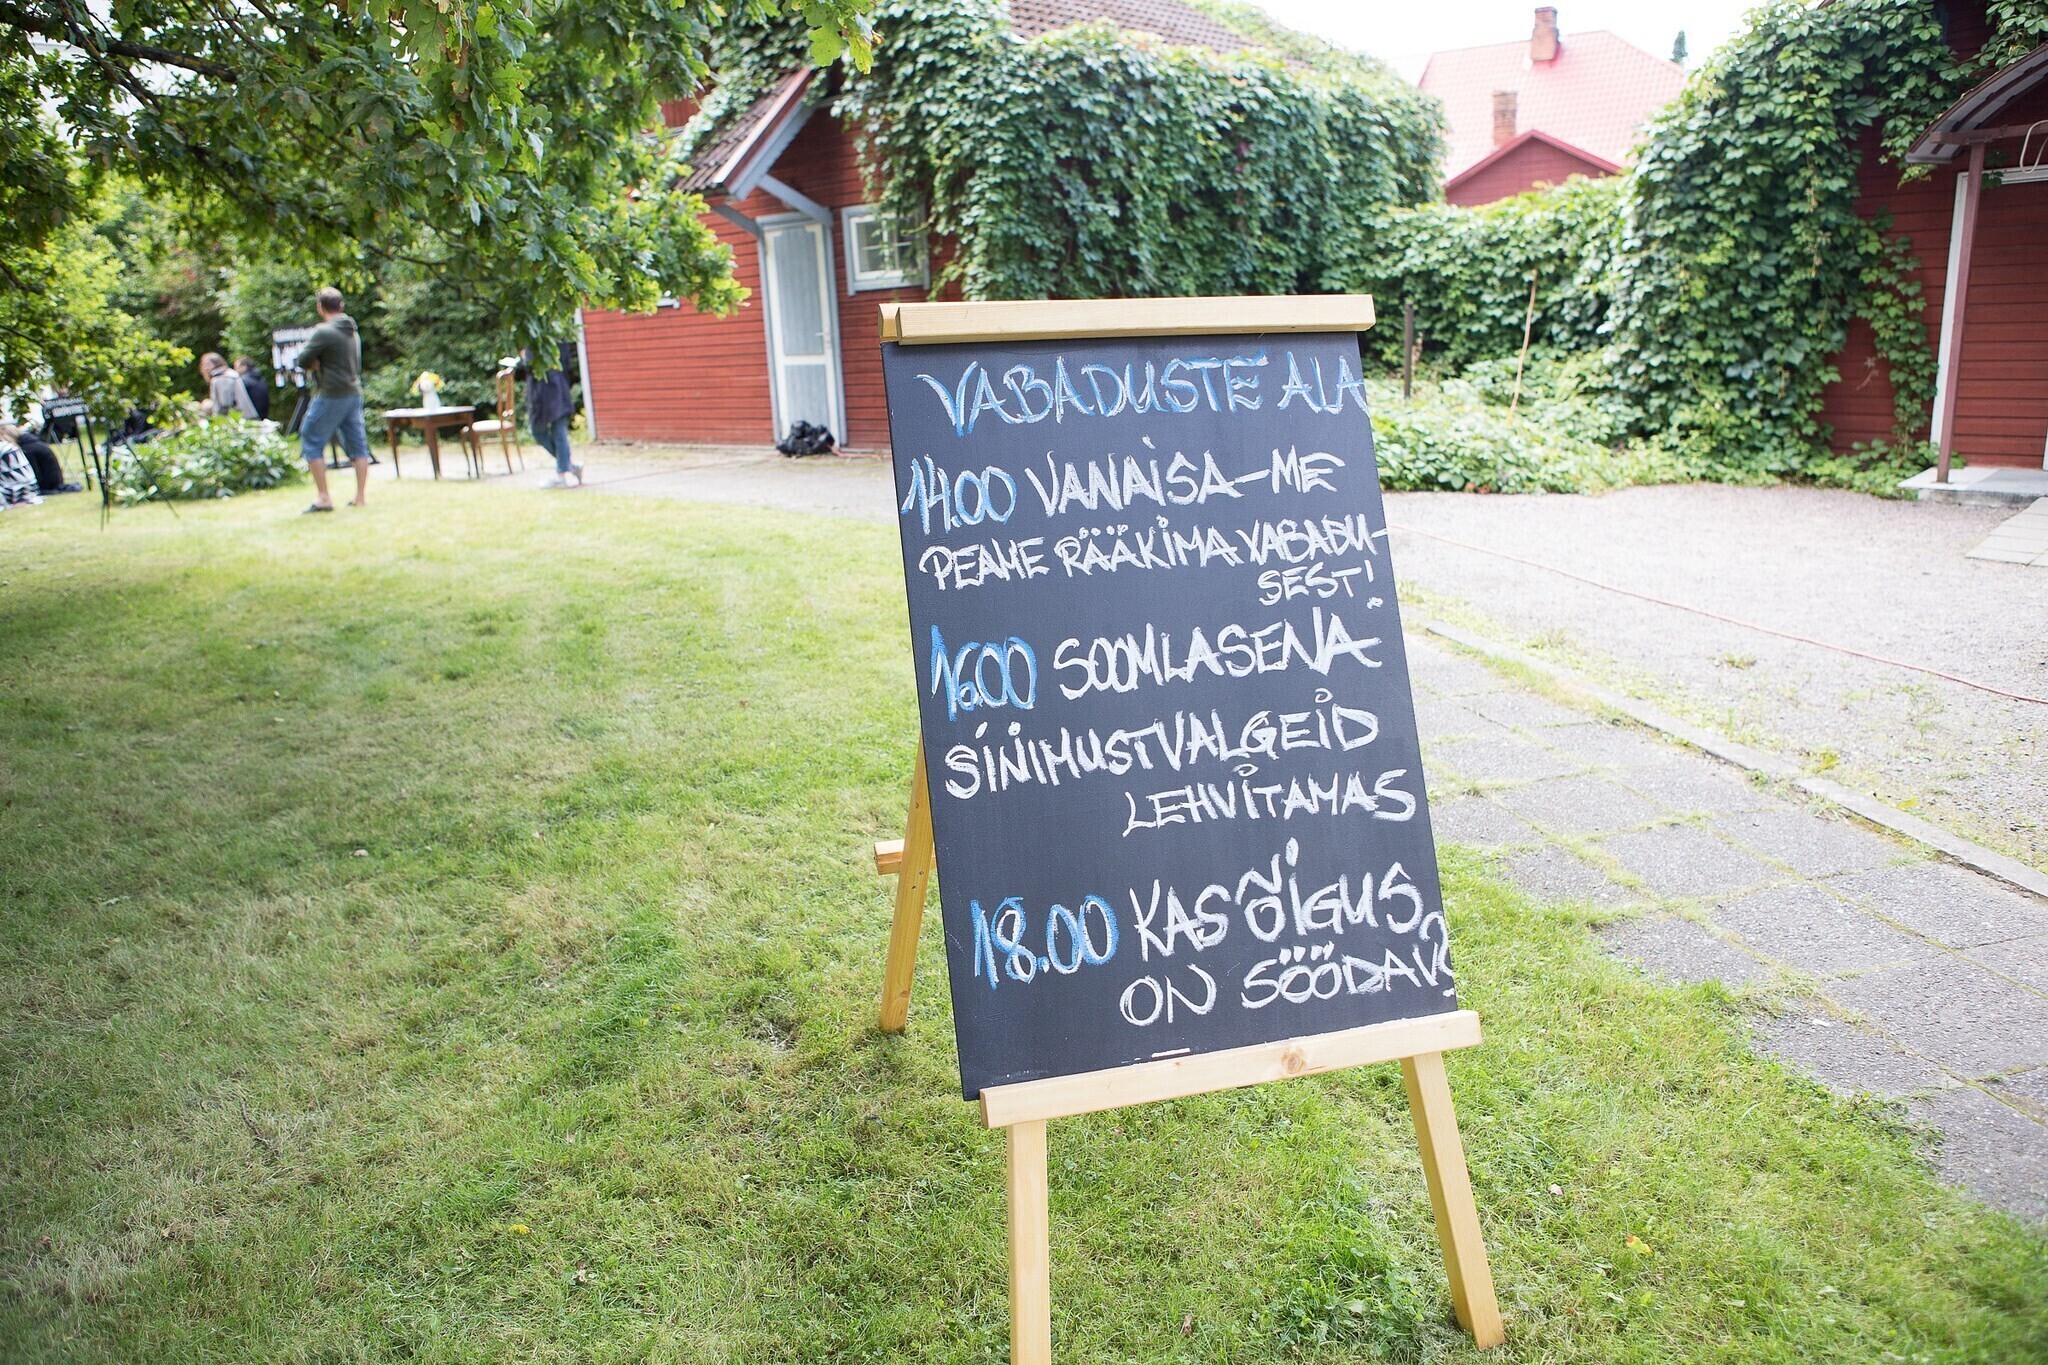 VABADUSTE ALA
14.00 VANAISA-ME
PEAME RÄÄKIMA VABADU-
SEST!
16.00 SOOMLASENA
SINIMUSTVALGEID
LEHVITAMAS
18.00 KAS ÕIGUS
ON SÖÖDAV?